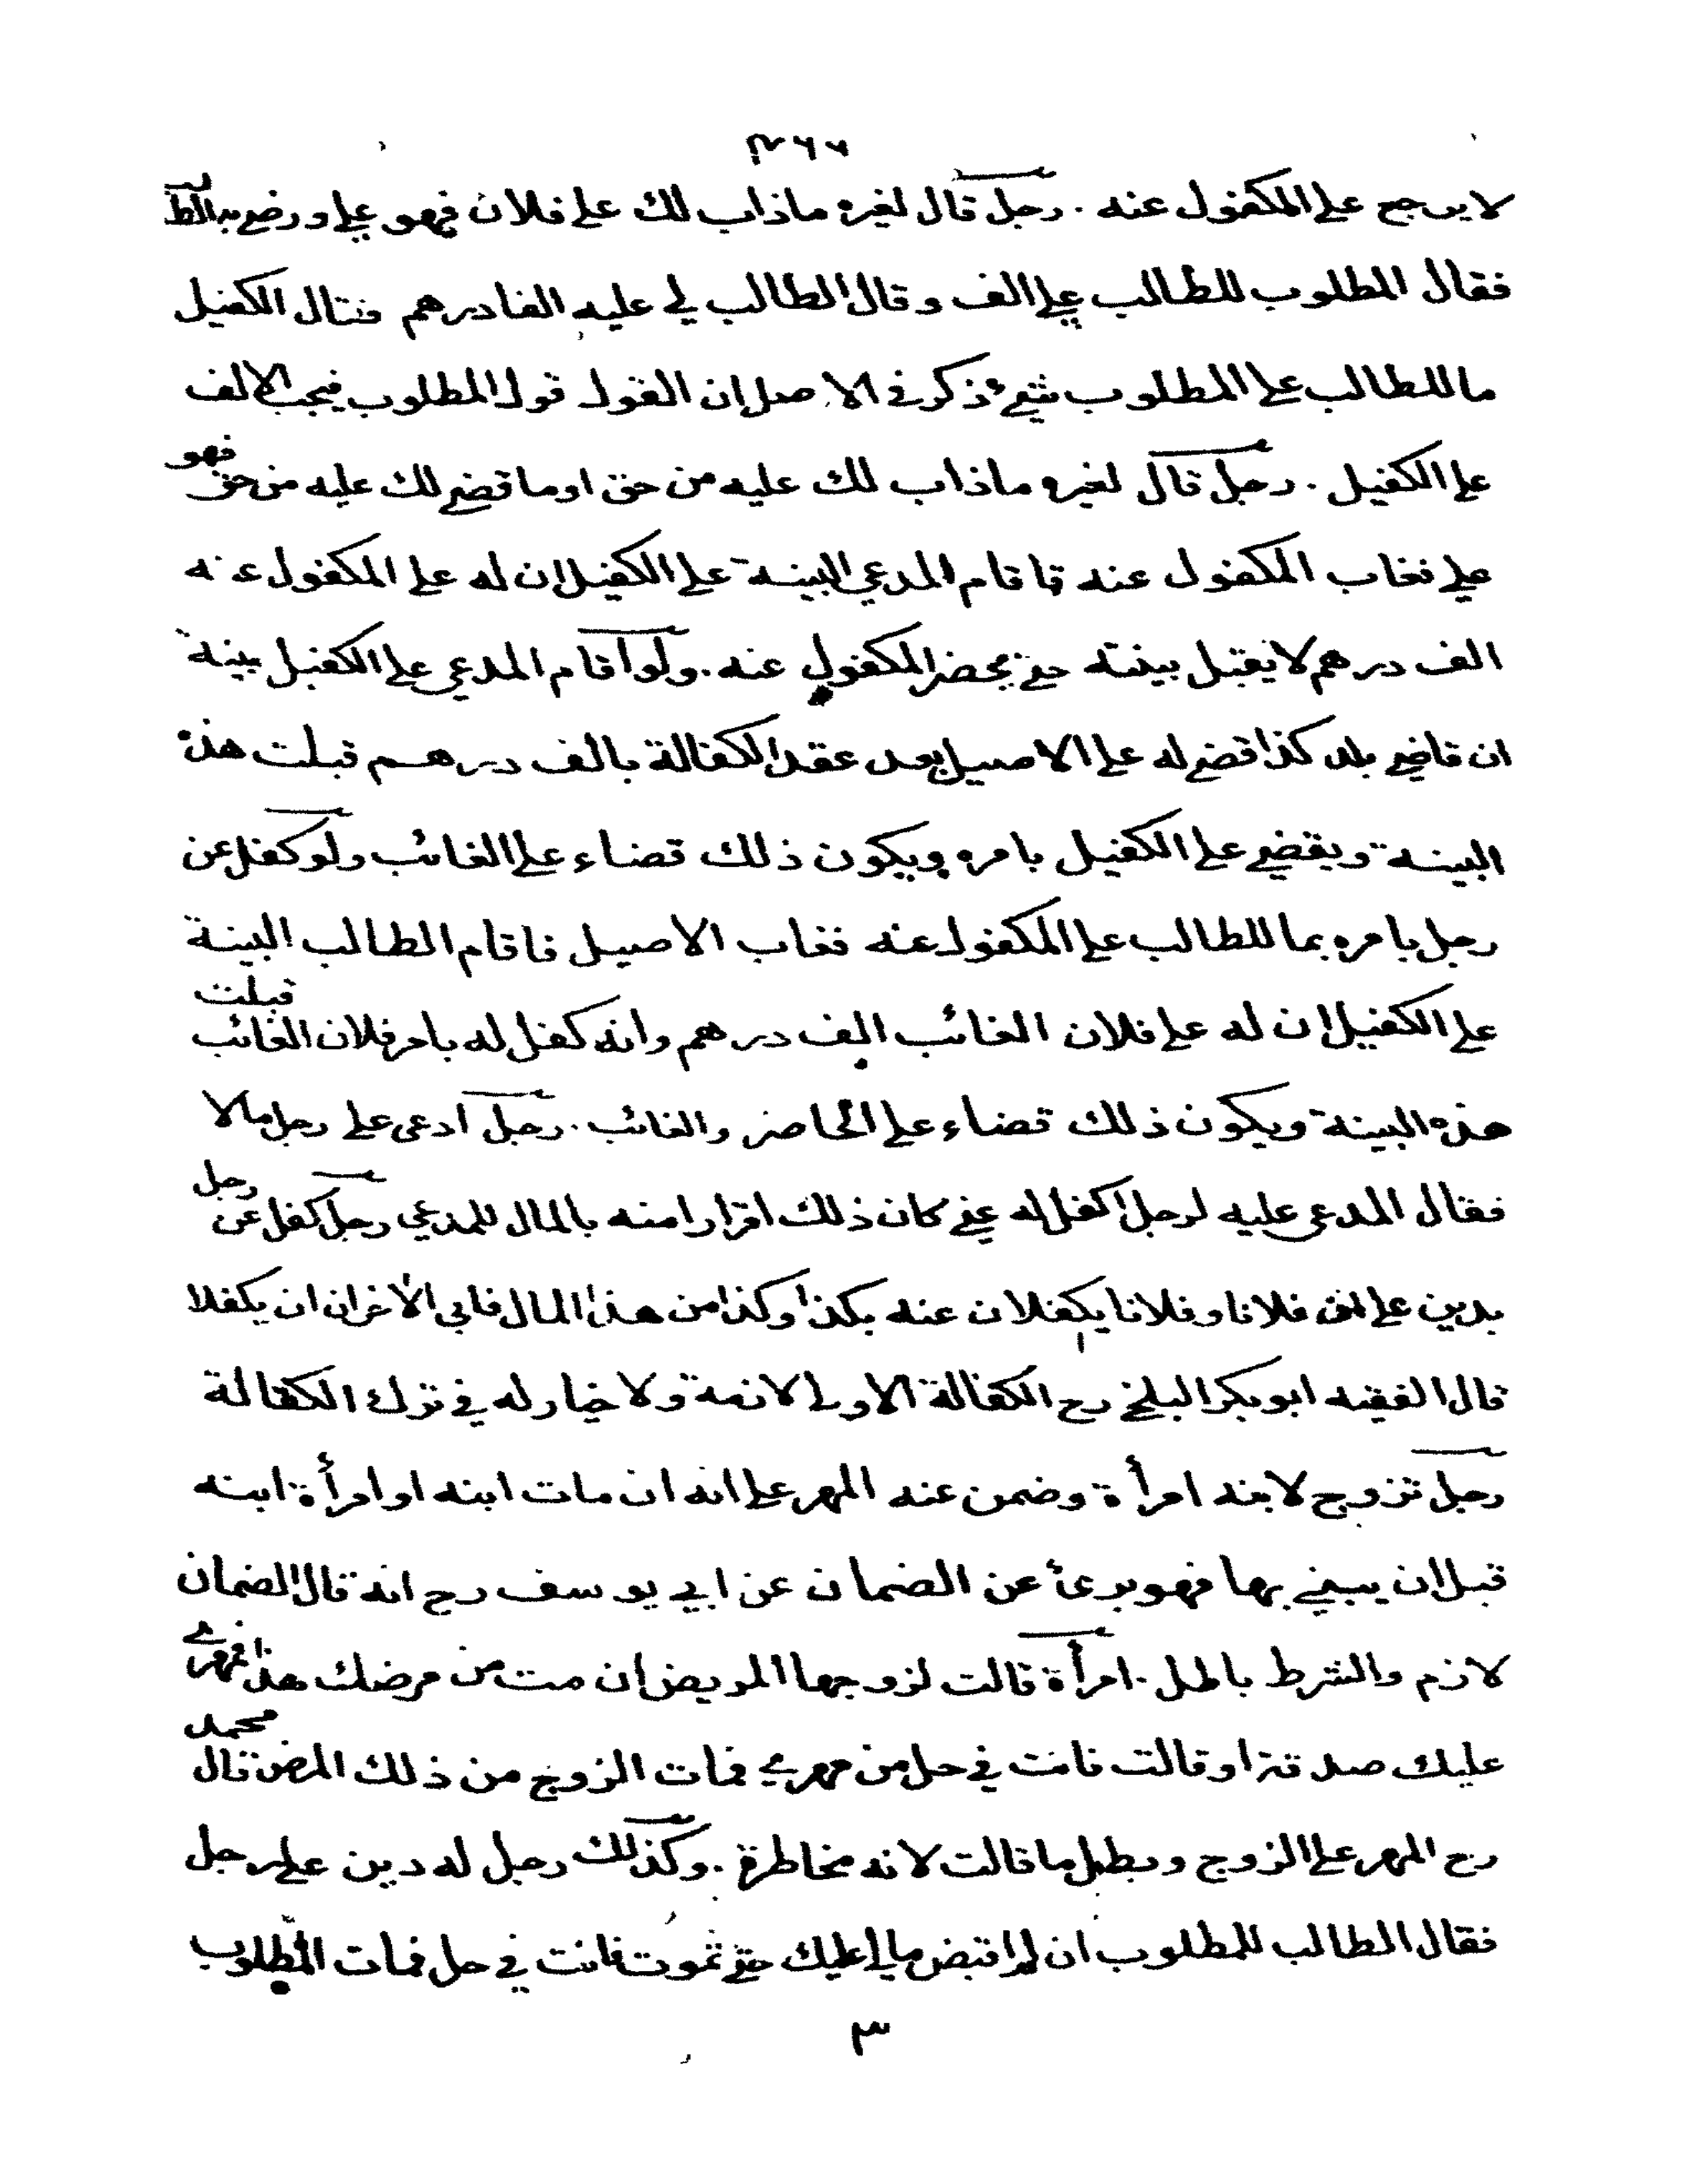 ٣٦٦
لا يرجع على المكفول عنه . رجل قال لغيره ماذاب لك على فلان فهو علي ورضي به الطالب
فقال المطلوب للطالب علي الف وقال الطالب لي عليه الفا درهم فقال الكفيل
ما للطالب على المطلوب شيء ذكر في الاصل ان القول قول المطلوب فيجب الالف
على الكفيل . رجل قال لغيره ماذاب لك عليه من حق او ما قضي لك عليه من حق فهو
علي فغاب المكفول عنه فاقام المدعي البينة على الكفيل ان له على المكفول عنه
الف درهم لا يقبل بينته حتى يحضر المكفول عنه . ولو اقام المدعي على الكفيل بينة
ان قاضي بلد كذا قضى له على الاصيل بعد عقد الكفالة بالف درهم قبلت هذه
البينة ويقضي على الكفيل بامره ويكون ذلك قضاء على الغائب ولو كفل عن
رجل بامره بما للطالب على المكفول عنه فغاب الاصيل فاقام الطالب البينة
على الكفيل ان له على فلان الغائب الف درهم وانه كفل له بامر فلان الغائب قبلت
هذه البينة ويكون ذلك قضاء على الحاضر والغائب . رجل ادعى على رجل مالا
فقال المدعى عليه لرجل اكفل له عني كان ذلك اقرارا منه بالمال للمدعي رجل كفل عن رجل
بدين على ان فلانا وفلانا يكفلان عنه بكذا وكذا من هذا المال فابى الاخران ان يكفلا
قال الفقيه ابو بكر البلخي رح الكفالة الاولى لازمة ولا خيار له في ترك الكفالة
رجل تزوج لابنه امرأة وضمن عنه المهر على انه ان مات ابنه او امرأة ابنه
قبل ان يبني بها فهو برئ عن الضمان عن ابي يوسف رح انه قال الضمان
لازم والشرط باطل . امرأة قالت لزوجها المريض ان مت من مرضك هذا فمهري
عليك صدقة او قالت فانت في حل من مهري فمات الزوج من ذلك المرض قال محمد
رح المهر على الزوج وبطل ما قالت لانه مخاطرة . وكذلك رجل له دين على رجل
فقال الطالب للمطلوب ان لم اقبض مالي عليك حتى تموت فانت في حل فمات المطلوب
٣